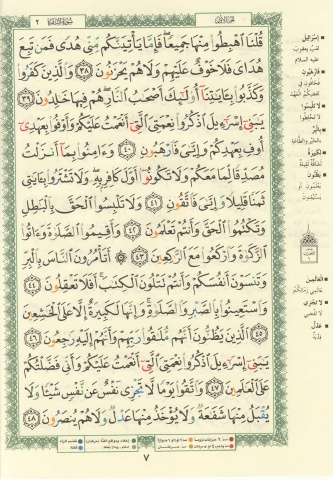 سورة البقرة ٢
الجزء الأول
قُلْنَا ٱهْبِطُوا۟ مِنْهَا جَمِيعًا فَإِمَّا يَأْتِيَنَّكُم مِّنِّى هُدًى فَمَن تَبِعَ
هُدَاىَ فَلَا خَوْفٌ عَلَيْهِمْ وَلَا هُمْ يَحْزَنُونَ ٣٨ وَٱلَّذِينَ كَفَرُوا۟
وَكَذَّبُوا۟ بِـَٔايَـٰتِنَآ أُو۟لَـٰٓئِكَ أَصْحَـٰبُ ٱلنَّارِ هُمْ فِيهَا خَـٰلِدُونَ ٣٩
يَـٰبَنِىٓ إِسْرَٰٓءِيلَ ٱذْكُرُوا۟ نِعْمَتِىَ ٱلَّتِىٓ أَنْعَمْتُ عَلَيْكُمْ وَأَوْفُوا۟ بِعَهْدِىٓ
أُوفِ بِعَهْدِكُمْ وَإِيَّـٰىَ فَٱرْهَبُونِ ٤٠ وَءَامِنُوا۟ بِمَآ أَنزَلْتُ
مُصَدِّقًا لِّمَا مَعَكُمْ وَلَا تَكُونُوٓا۟ أَوَّلَ كَافِرٍۭ بِهِۦ وَلَا تَشْتَرُوا۟ بِـَٔايَـٰتِى
ثَمَنًا قَلِيلًا وَإِيَّـٰىَ فَٱتَّقُونِ ٤١ وَلَا تَلْبِسُوا۟ ٱلْحَقَّ بِٱلْبَـٰطِلِ
وَتَكْتُمُوا۟ ٱلْحَقَّ وَأَنتُمْ تَعْلَمُونَ ٤٢ وَأَقِيمُوا۟ ٱلصَّلَوٰةَ وَءَاتُوا۟
ٱلزَّكَوٰةَ وَٱرْكَعُوا۟ مَعَ ٱلرَّٰكِعِينَ ٤٣ أَتَأْمُرُونَ ٱلنَّاسَ بِٱلْبِرِّ
وَتَنسَوْنَ أَنفُسَكُمْ وَأَنتُمْ تَتْلُونَ ٱلْكِتَـٰبَ أَفَلَا تَعْقِلُونَ ٤٤
وَٱسْتَعِينُوا۟ بِٱلصَّبْرِ وَٱلصَّلَوٰةِ وَإِنَّهَا لَكَبِيرَةٌ إِلَّا عَلَى ٱلْخَـٰشِعِينَ
٤٥ ٱلَّذِينَ يَظُنُّونَ أَنَّهُم مُّلَـٰقُوا۟ رَبِّهِمْ وَأَنَّهُمْ إِلَيْهِ رَٰجِعُونَ ٤٦
يَـٰبَنِىٓ إِسْرَٰٓءِيلَ ٱذْكُرُوا۟ نِعْمَتِىَ ٱلَّتِىٓ أَنْعَمْتُ عَلَيْكُمْ وَأَنِّى فَضَّلْتُكُمْ
عَلَى ٱلْعَـٰلَمِينَ ٤٧ وَٱتَّقُوا۟ يَوْمًا لَّا تَجْزِى نَفْسٌ عَن نَّفْسٍ شَيْـًٔا وَلَا
يُقْبَلُ مِنْهَا شَفَـٰعَةٌ وَلَا يُؤْخَذُ مِنْهَا عَدْلٌ وَلَا هُمْ يُنصَرُونَ ٤٨
٧
إسرائيل
لقب يعقوب
عليه السلام
فارهبون
لا تلبسوا
لا تخلطوا
بالبر
لكبيرة
يظنون
العالمين
لا تجزي
لا تقضي
عدل
فدية